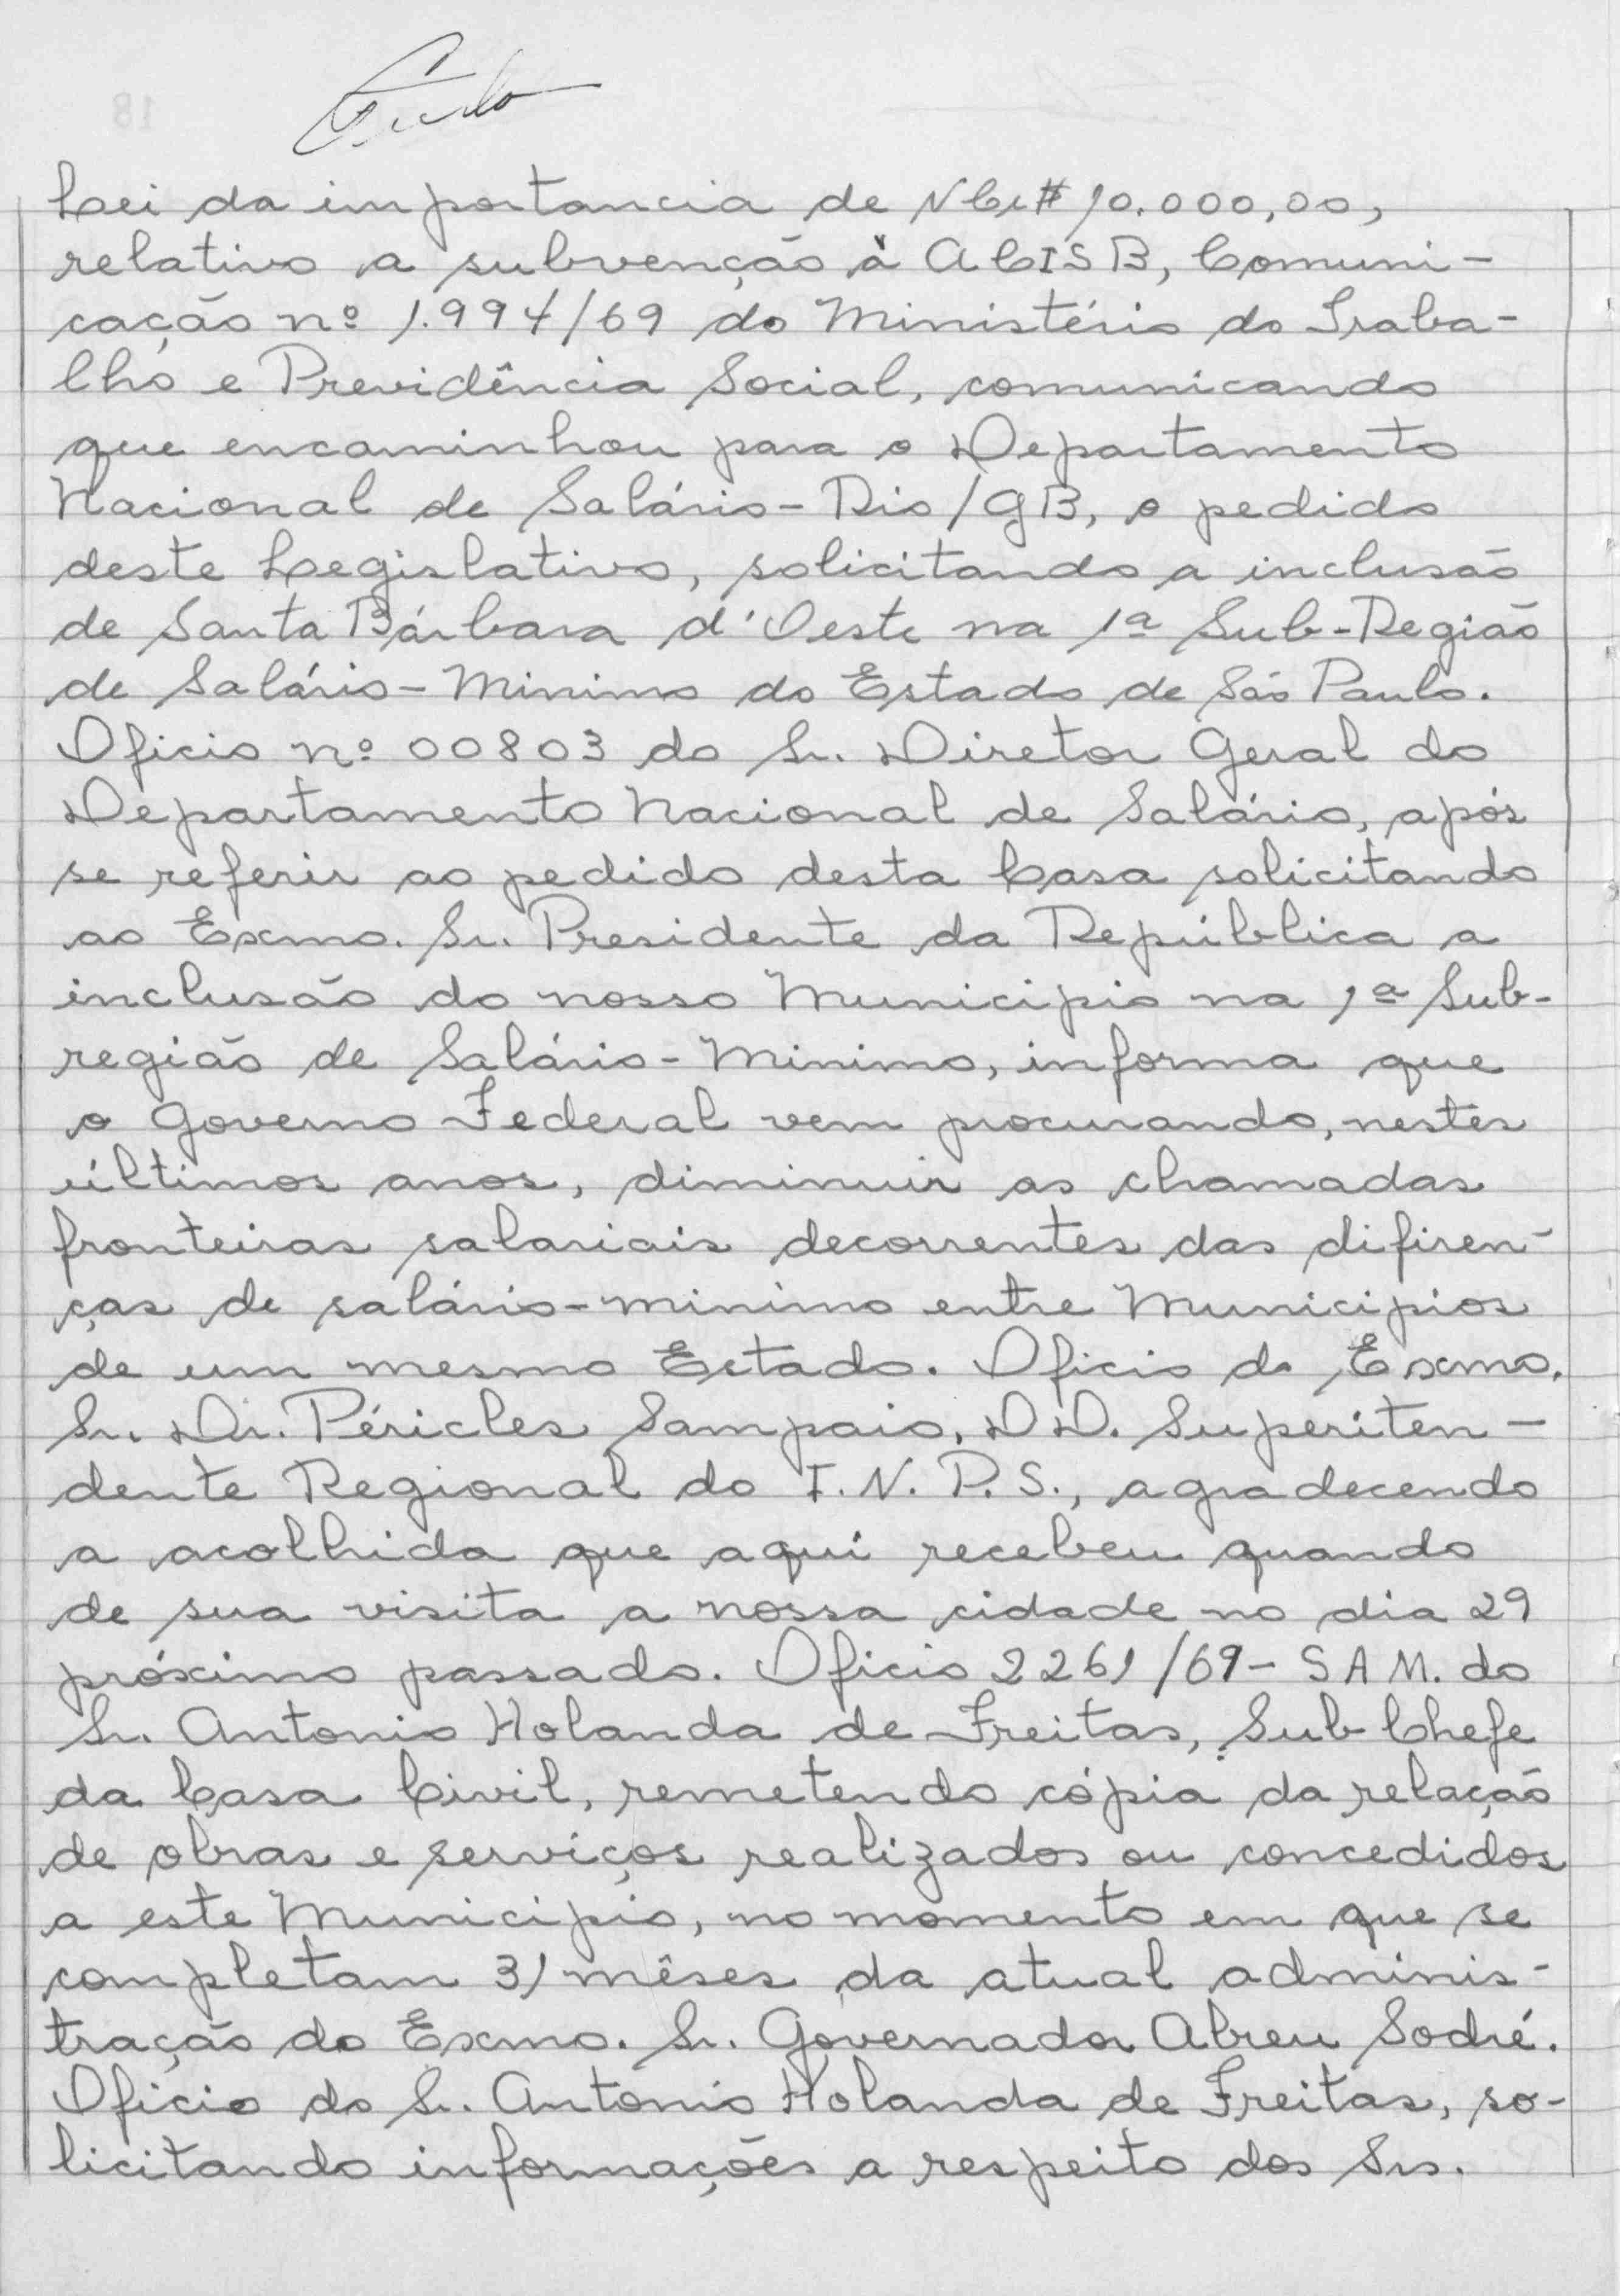 Lei da importancia de NCr$ 10.000,00,
relativo a subvenção à ACISB, Comuni-
cação nº 1.994/69 do Ministério do Traba-
lho e Previdência Social, comunicando
que encaminhou para o Departamento
Nacional de Salário - Rio/GB, o pedido
deste Legislativo, solicitando a inclusão
de Santa Bárbara d'Oeste na 1ª Sub-Região
de Salário-Minimo do Estado de São Paulo.
Oficio nº 00803 do Sr. Diretor Geral do
Departamento Nacional de Salário, após
se referir ao pedido desta Casa solicitando
ao Exmo. Sr. Presidente da República a
inclusão do nosso Municipio na 1ª Sub-
região de Salário-Minimo, informa que
o Governo Federal vem procurando, nestes
últimos anos, diminuir as chamadas
fronteiras salariais decorrentes das difiren-
ças de salário-minimo entre Municipios
de um mesmo Estado. Oficio do Exmo.
Sr. Dr. Péricles Sampaio, DD. Superiten-
dente Regional do I.N.P.S., agradecendo
a acolhida que aqui recebeu quando
de sua visita a nossa cidade no dia 29
próximo passado. Oficio 2261/69 - SAM. do
Sr. Antonio Holanda de Freitas, Sub-Chefe
da Casa Civil, remetendo cópia da relação
de obras e serviços realizados ou concedidos
a este Municipio, no momento em que se
completam 31 mêses da atual adminis-
tração do Exmo. Sr. Governador Abreu Sodré.
Oficio do Sr. Antonio Holanda de Freitas, so-
licitando informações a respeito dos Srs.